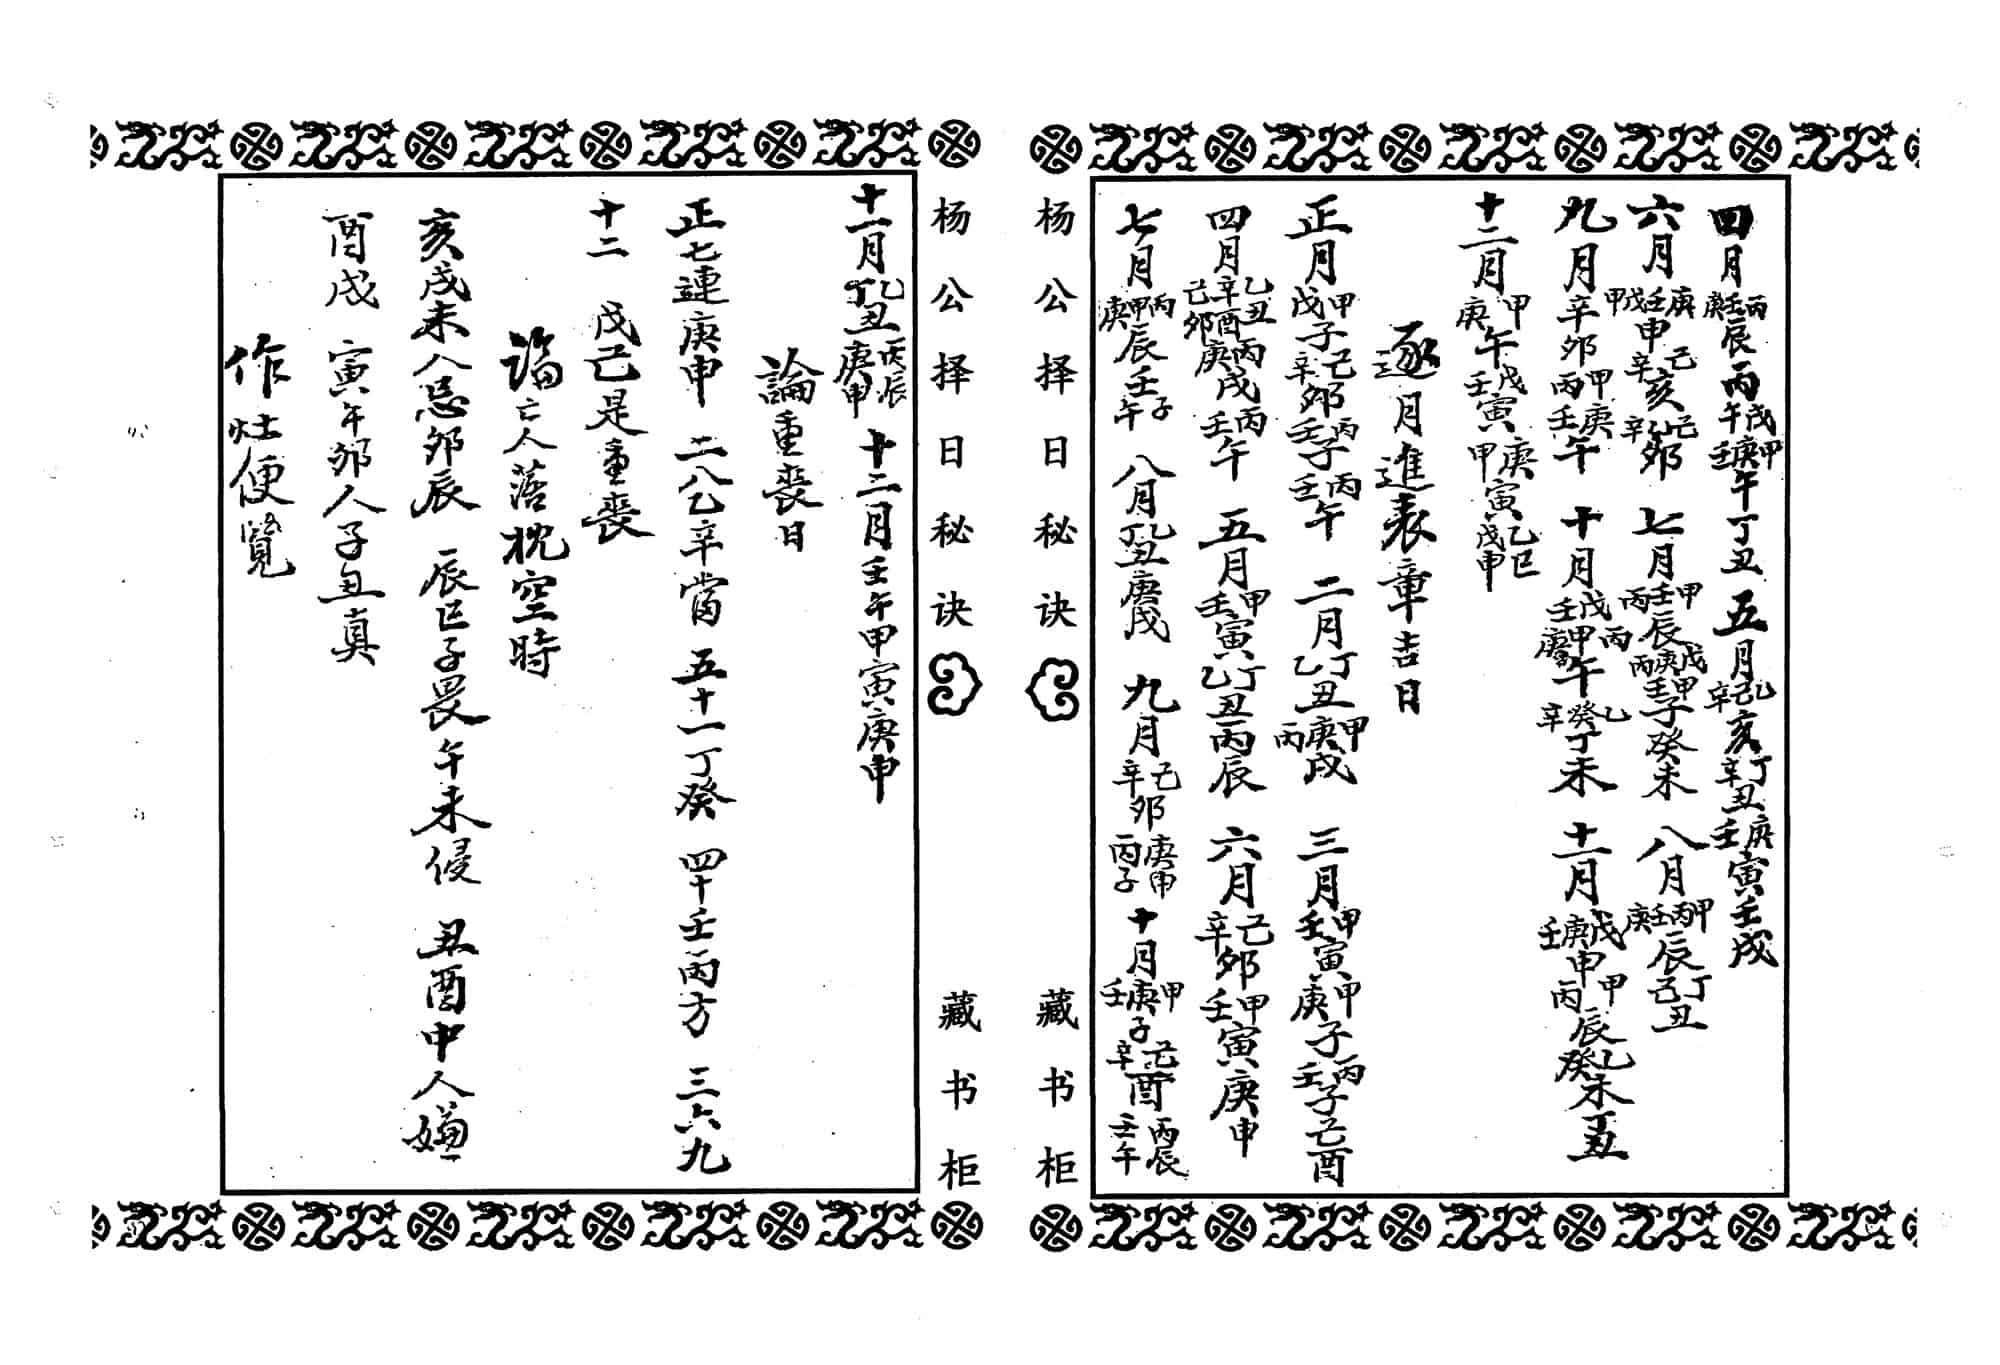 四月丙壬庚辰丙午戊壬甲庚壬午丁丑 五月乙己辛亥丁辛丑庚壬寅壬戌
六月庚壬戊甲申己辛亥己辛卯 七月甲壬丙辰戊庚丙甲壬子癸未 八月甲丙壬庚辰丁己丑
九月辛卯甲丙庚壬午 十月戊壬丙甲庚午乙癸辛丁未 十一月戊庚壬申甲丙辰乙癸未丁丑
十二月甲庚午戊壬寅庚甲寅乙巳戊申
逐月進表章吉日
正月甲戊子己辛卯丙壬子丙壬午 二月丁乙丑甲庚丙戌 三月甲壬寅甲庚子丙壬子己酉
四月乙丑辛酉己卯丙庚戌丙壬午 五月甲壬寅丁乙丑丙辰 六月己辛卯甲壬寅庚申
七月丙甲庚辰壬子午 八月乙丁丑庚戌 九月己辛卯庚申丙子 十月甲庚壬子己辛酉丙辰壬午
杨公择日秘诀 藏书柜
杨公择日秘诀 藏书柜
十一月乙丁丑丙辰庚申 十二月壬午甲寅庚申
論重喪日
正七連庚申 二八乙辛當 五十一丁癸 四十壬丙方 三六九
十二 戊己是重喪
論亡人落枕空時
亥戌未人忌卯辰 辰巳子畏午未侵 丑酉申人嫌
酉戌 寅午卯人子丑真
作灶便覧